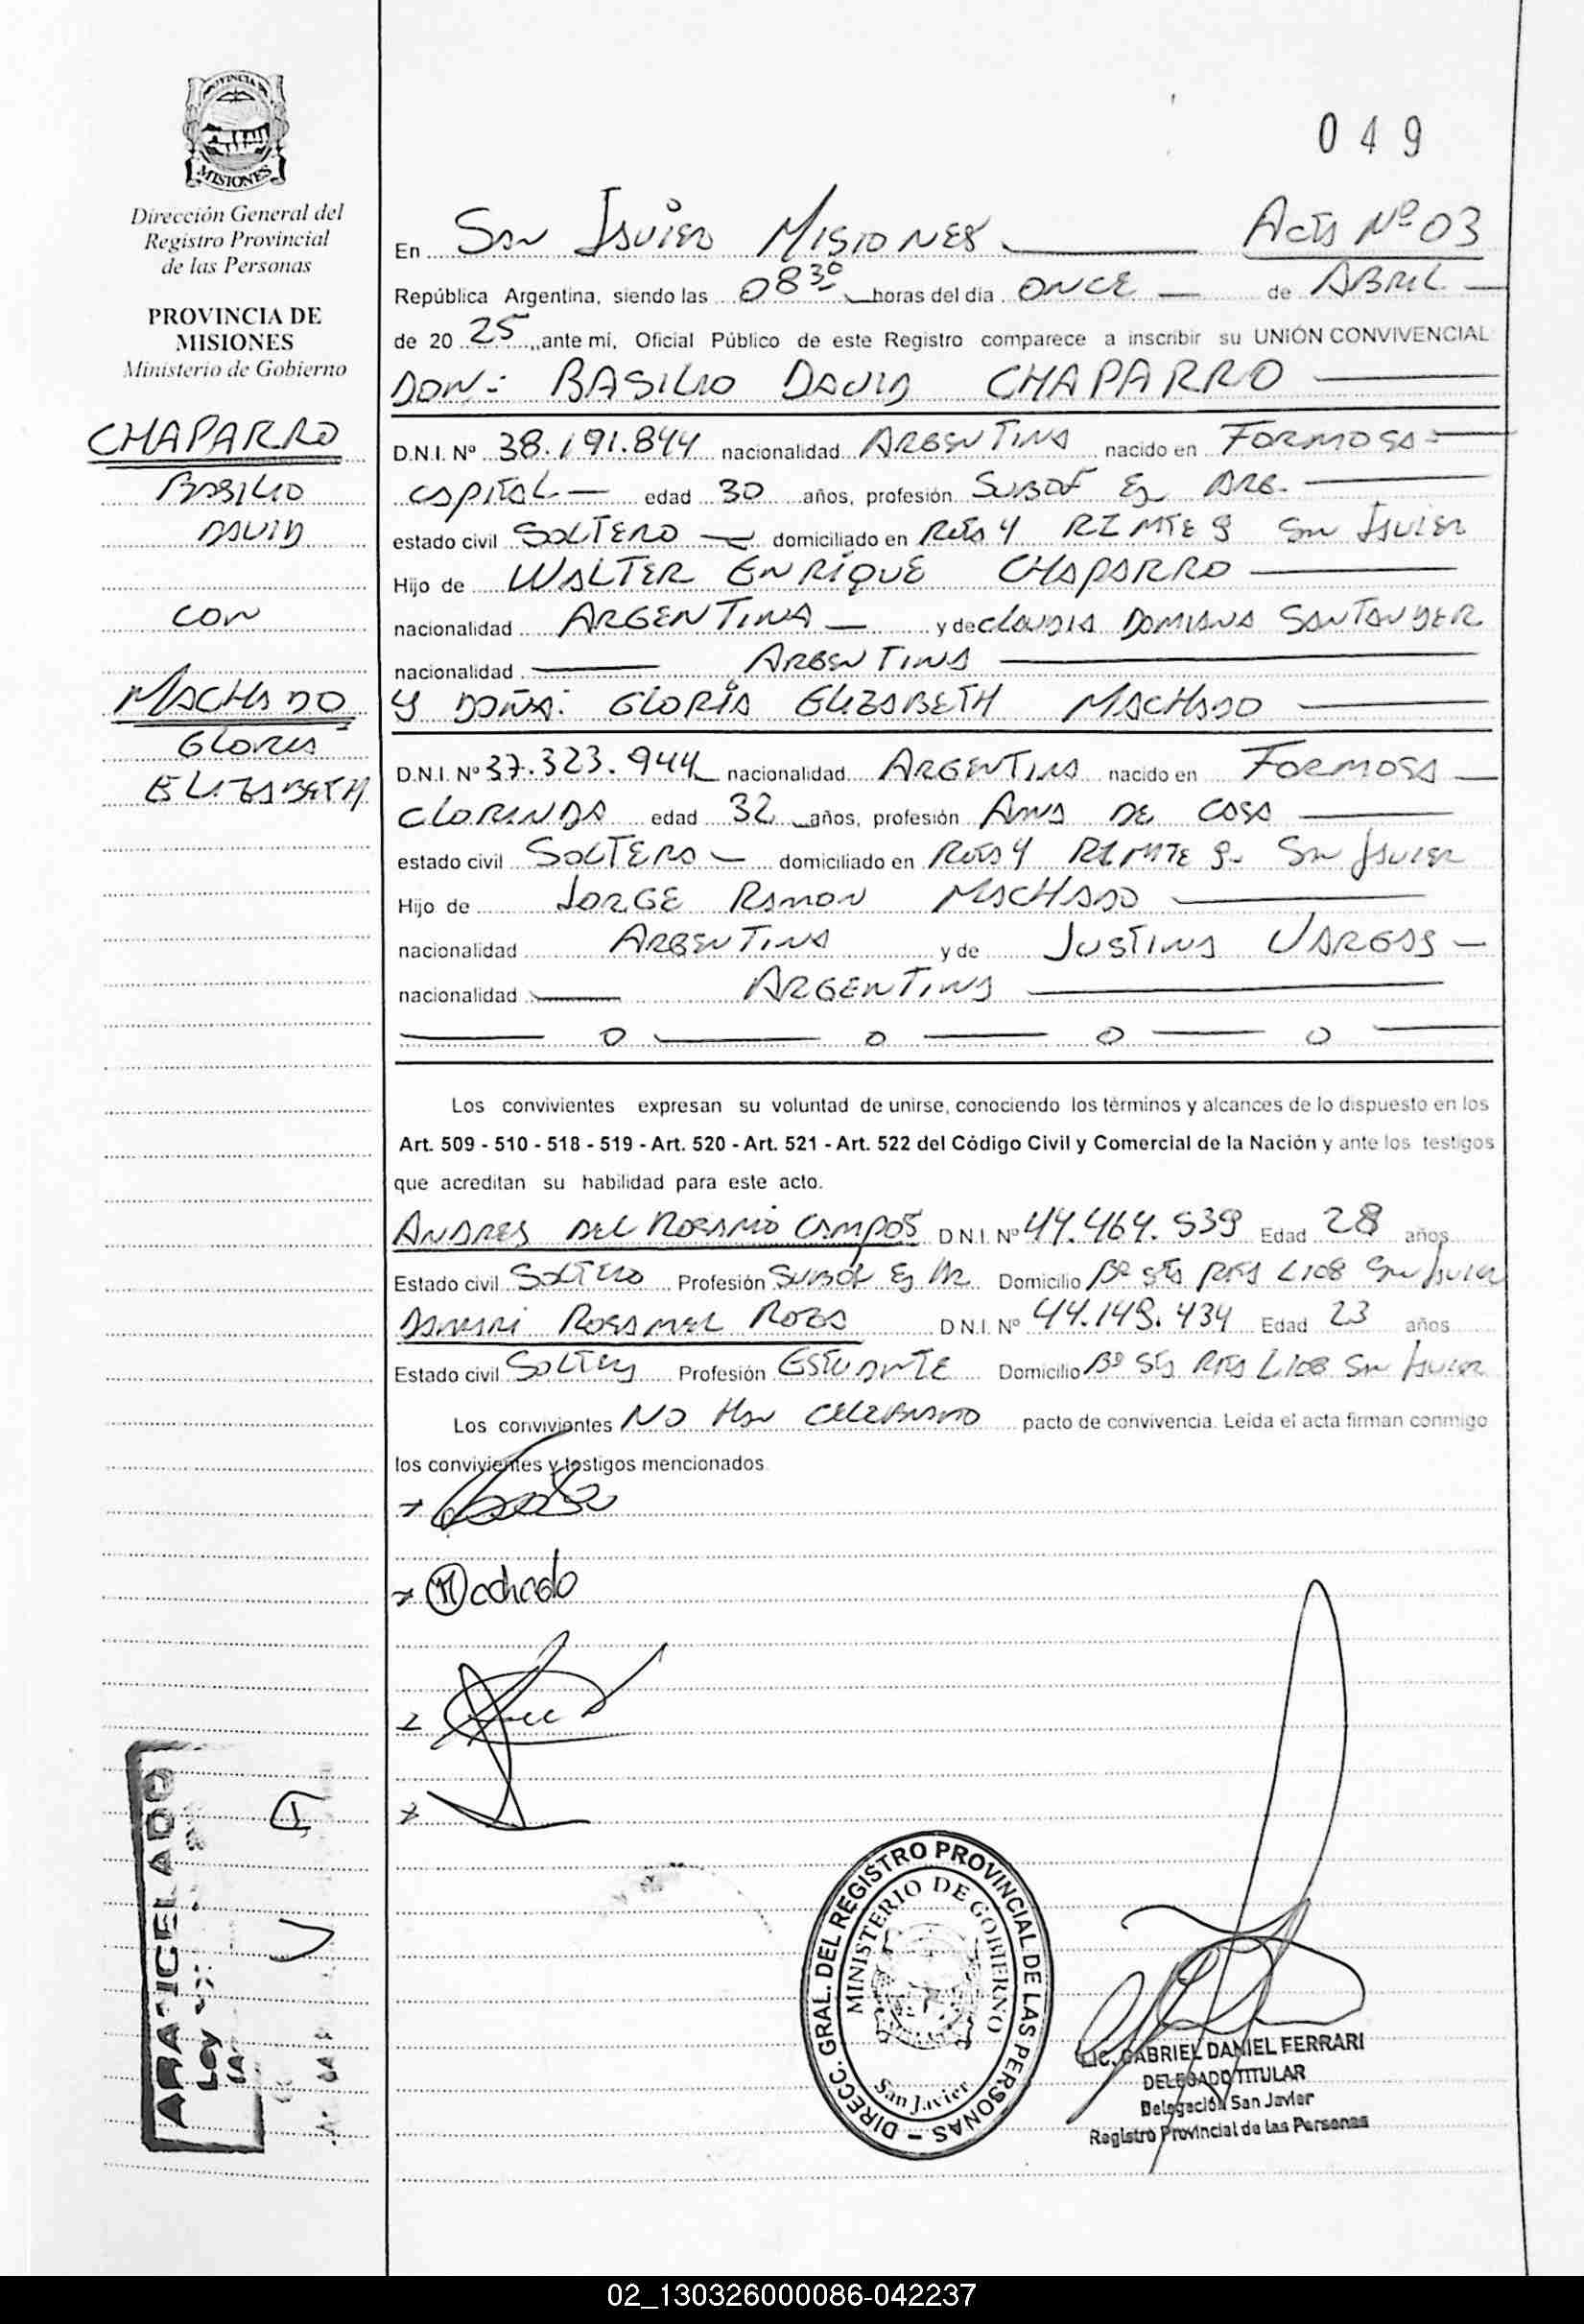 PROVINCIA DE
MISIONES
Dirección General del
Registro Provincial
de las Personas
PROVINCIA DE
MISIONES
Ministerio de Gobierno
CHAPARRO
BASILIO
DAVID
CON
MACHADO
GLORIA
ELIZABETH
049
En SAN JAVIER MISIONES Acta Nº 03
República Argentina, siendo las 08 30 horas del día ONCE de ABRIL
de 20 25, ante mi, Oficial Público de este Registro comparece a inscribir su UNIÓN CONVIVENCIAL
DON: BASILIO DAVID CHAPARRO
D.N.I. Nº 38.191.844 nacionalidad ARGENTINA nacido en FORMOSA
CAPITAL edad 30 años, profesión SUBOF EJ ARG.
estado civil SOLTERO domiciliado en RUTA 4 RI MTE 9 SAN JAVIER
Hijo de WALTER ENRIQUE CHAPARRO
nacionalidad ARGENTINA y de CLAUDIA DAMIANA SANTANDER
nacionalidad ARGENTINA
Y DOÑA: GLORIA ELIZABETH MACHADO
D.N.I. Nº 37.323.944 nacionalidad ARGENTINA nacido en FORMOSA
CLORINDA edad 32 años, profesión AMA DE CASA
estado civil SOLTERA domiciliado en RUTA 4 RI MTE 9 SAN JAVIER
Hijo de JORGE RAMON MACHADO
nacionalidad ARGENTINA y de JUSTINA VARGAS
nacionalidad ARGENTINA
Los convivientes expresan su voluntad de unirse, conociendo los términos y alcances de lo dispuesto en los
Art. 509 - 510 - 518 - 519 - Art. 520 - Art. 521 - Art. 522 del Código Civil y Comercial de la Nación y ante los testigos
que acreditan su habilidad para este acto.
ANDRES DEL ROSARIO CAMPOS D.N.I. Nº 44.464.539 Edad 28 años
Estado civil SOLTERO Profesión SUBOF EJ AR Domicilio Bº STA RITA L108 SAN JAVIER
ROSA D.N.I. Nº 44.149.434 Edad 23 años
Estado civil SOLTERA Profesión ESTUDIANTE Domicilio Bº STA RITA L108 SAN JAVIER
Los convivientes NO HAN CELEBRADO pacto de convivencia. Leída el acta firman conmigo
los convivientes y testigos mencionados.
Machado
ARANCELADO
Ley
DIRECC. GRAL. DEL REGISTRO PROVINCIAL DE LAS PERSONAS
MINISTERIO DE GOBIERNO
San Javier
LIC. GABRIEL DANIEL FERRARI
DELEGADO TITULAR
Delegación San Javier
Registro Provincial de las Personas
02_130326000086-042237